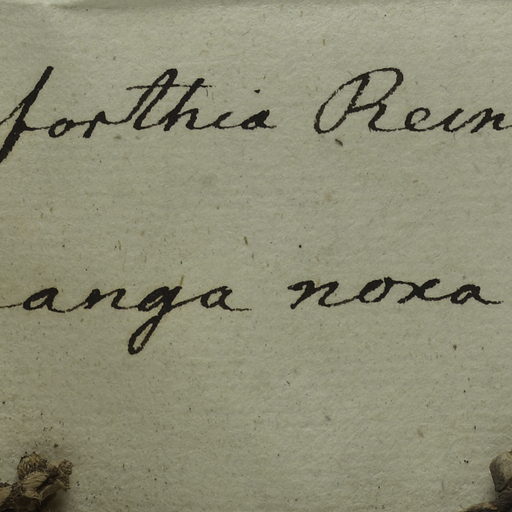 forthia Rein
anga noxa